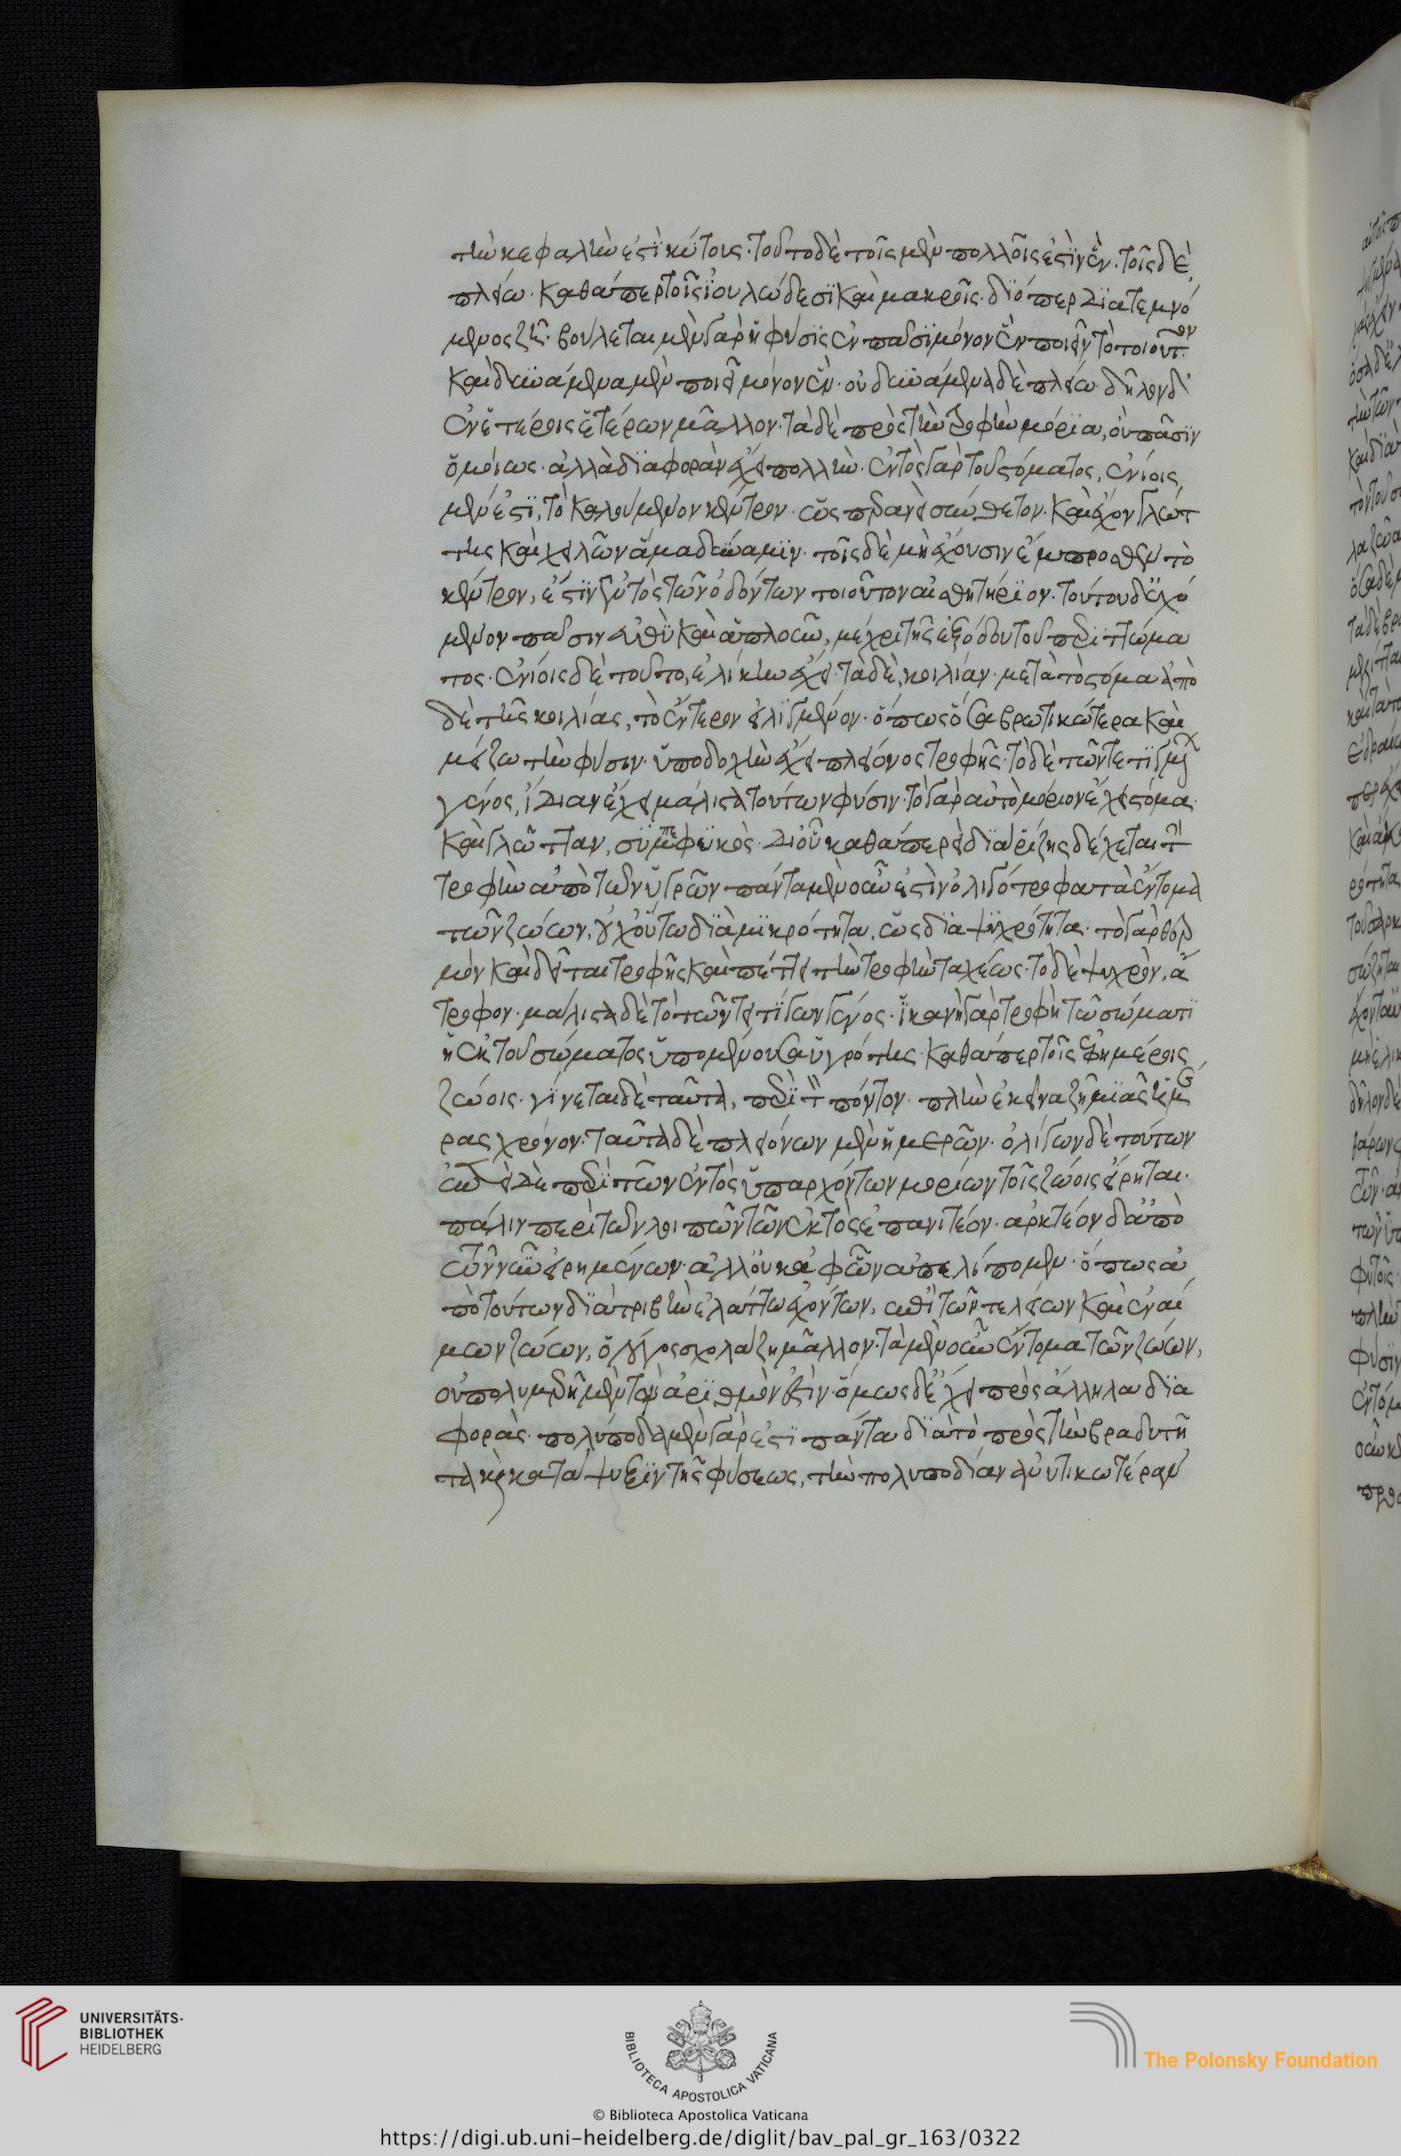 τὴν κεφαλὴν ἐστὶ κύτους. τοῦτο δὲ τοῖς μὲν πολλοῖς ἐστὶν ἕν. τοῖς δὲ,
πλείω. καθάπερ τοῖς ἰουλώδεσι καὶ μακροῖς. διόπερ διατεμνό
μενος ζῆ. βούλεται μὲν γὰρ ἡ φύσις ἐν πᾶσι μόνον ἓν ποιεῖν τὸ τοιοῦτον
καὶ δυναμένα μὲν ποιεῖ μόνον ἕν. οὐ δυνάμενα δὲ πλείω. δῆλον δ'
ἐν ἑτέροις ἑτέρων μᾶλλον. τὰ δὲ πρὸς τὴν τροφὴν μόρια, οὐ πᾶσιν
ὁμοίως. ἀλλὰ διαφορὰν ἔχει πολλήν. ἐντὸς γὰρ τοῦ στόματος, ἐνίοις
μέν ἐστι, τὸ καλούμενον κέντρον. ὡσπερανεὶ σύνθετον. καὶ ἔχον γλώτ
της καὶ χειλῶν ἅμα δύναμιν. τοῖς δὲ μὴ ἔχουσιν ἔμπροσθεν τὸ
κέντρον, ἔστιν ἐντὸς τῶν ὀδόντων τοιοῦτον αἰσθητήριον. τούτου δ' ἐχό
μενον πᾶσιν εὐθὺ καὶ ἁπλοῦν, μέχρι τῆς ἐξόδου τοῦ περιττώμα
τος. ἐνίοις δὲ τοῦτο, ἑλίκην ἔχει. τὰ δὲ, κοιλίαν. μετὰ τὸ στόμα ἀπὸ
δὲ τῆς κοιλίας, τὸ ἔντερον εἱλιγμένον. ὅπως ὅσα βρωτικώτερα καὶ
μείζω τὴν φύσιν. ὑποδοχὴν ἔχει πλείονος τροφῆς. τὸ δὲ τῶν τεττίγων
γένος, ἰδίαν ἔχει μάλιστα τούτων φύσιν. τὸ γὰρ αὐτὸ μόριον ἔχει στόμα
καὶ γλῶτταν, συμπεφυκός. δι' οὗ καθαπερεὶ διὰ ῥίζης δέχεται τὴν
τροφὴν ἀπὸ τῶν ὑγρῶν πάντα μὲν οὖν ἐστὶν ὀλιγότροφα τὰ ἔντομα
τῶν ζώων, οὐχ οὕτω διὰ μικρότητα, ὡς διὰ ψυχρότητα. τὸ γὰρ θερ
μὸν καὶ δεῖται τροφῆς καὶ πέττει τὴν τροφὴν ταχέως. τὸ δὲ ψυχρὸν, ἄ
τροφον. μάλιστα δὲ τὸ τῶν τεττίγων γένος. ἱκανὴ γὰρ τροφὴ τῷ σώματι
ἡ ἐκ τοῦ σώματος ὑπομένουσα ὑγρότης. καθάπερ τοῖς ἐφημέροις
ζώοις. γίνεται δὲ ταῦτα, περὶ τὸν πόντον. πλὴν ἐκεῖνα ζῆ μιᾶς ἡμέ
ρας χρόνον. ταῦτα δὲ πλειόνων μὲν ἡμερῶν. ὀλίγων δὲ τούτων
ἐπεὶ δὲ περὶ τῶν ἐντὸς ὑπαρχόντων μορίων τοῖς ζώοις εἴρηται.
πάλιν περὶ τῶν λοιπῶν τῶν ἐκτὸς ἐπανιτέον. ἀρκτέον δ' ἀπὸ
τῶν νῦν εἰρημένων. ἀλλ' οὐκ ἀφ' ὧν ἀπελίπομεν. ὅπως ἀ
πὸ τούτων διατριβὴν ἐλάττω ἐχόντων, ἐπὶ τῶν τελείων καὶ ἐναί
μων ζώων, ὁ λόγος σχολάζη μᾶλλον. τὰ μὲν οὖν ἔντομα τῶν ζώων,
οὐ πολυμερῆ μὲν τὸν ἀριθμὸν ἐστίν. ὅμως δ' ἔχει πρὸς ἄλληλα δια
φοράς. πολύποδα μὲν γάρ ἐστι πάντα διὰ τὸ πρὸς τὴν βραδυτῆ
τα καὶ κατάψυξιν τῆς φύσεως, τὴν πολυποδίαν ἀνυτικωτέραν